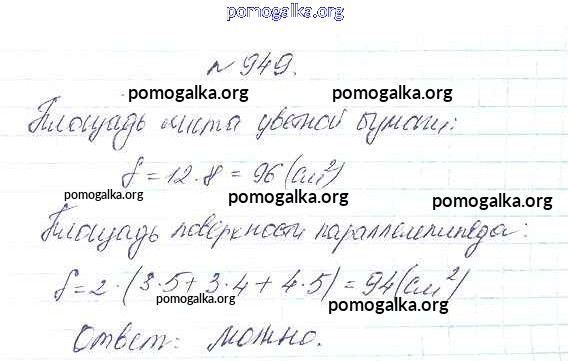 pomogalka.org
№ 949.
pomogalka.org pomogalka.org
Площадь листа цветной бумаги:
S = 12 · 8 = 96 (см²)
pomogalka.org pomogalka.org pomogalka.org
Площадь поверхности параллелепипеда:
pomogalka.org pomogalka.org
S = 2 · (3·5 + 3·4 + 4·5) = 94 (см²)
pomogalka.org pomogalka.org
Ответ: можно.